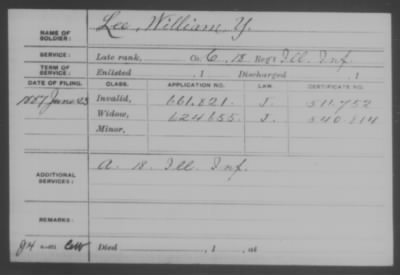 NAME OF SOLDIER: Lee, William Y.
SERVICE: Late rank, Co. C, 18 Reg't Ill. Inf.
TERM OF SERVICE: Enlisted , 1 Discharged , 1
DATE OF FILING. CLASS. APPLICATION NO. LAW. CERTIFICATE NO.
1887 June 23 Invalid, 661.821 J. 511.752
Widow, 624.655 J. 540.814
Minor,
ADDITIONAL SERVICES: A. 18. Ill. Inf.
REMARKS:
Died , 1 , at